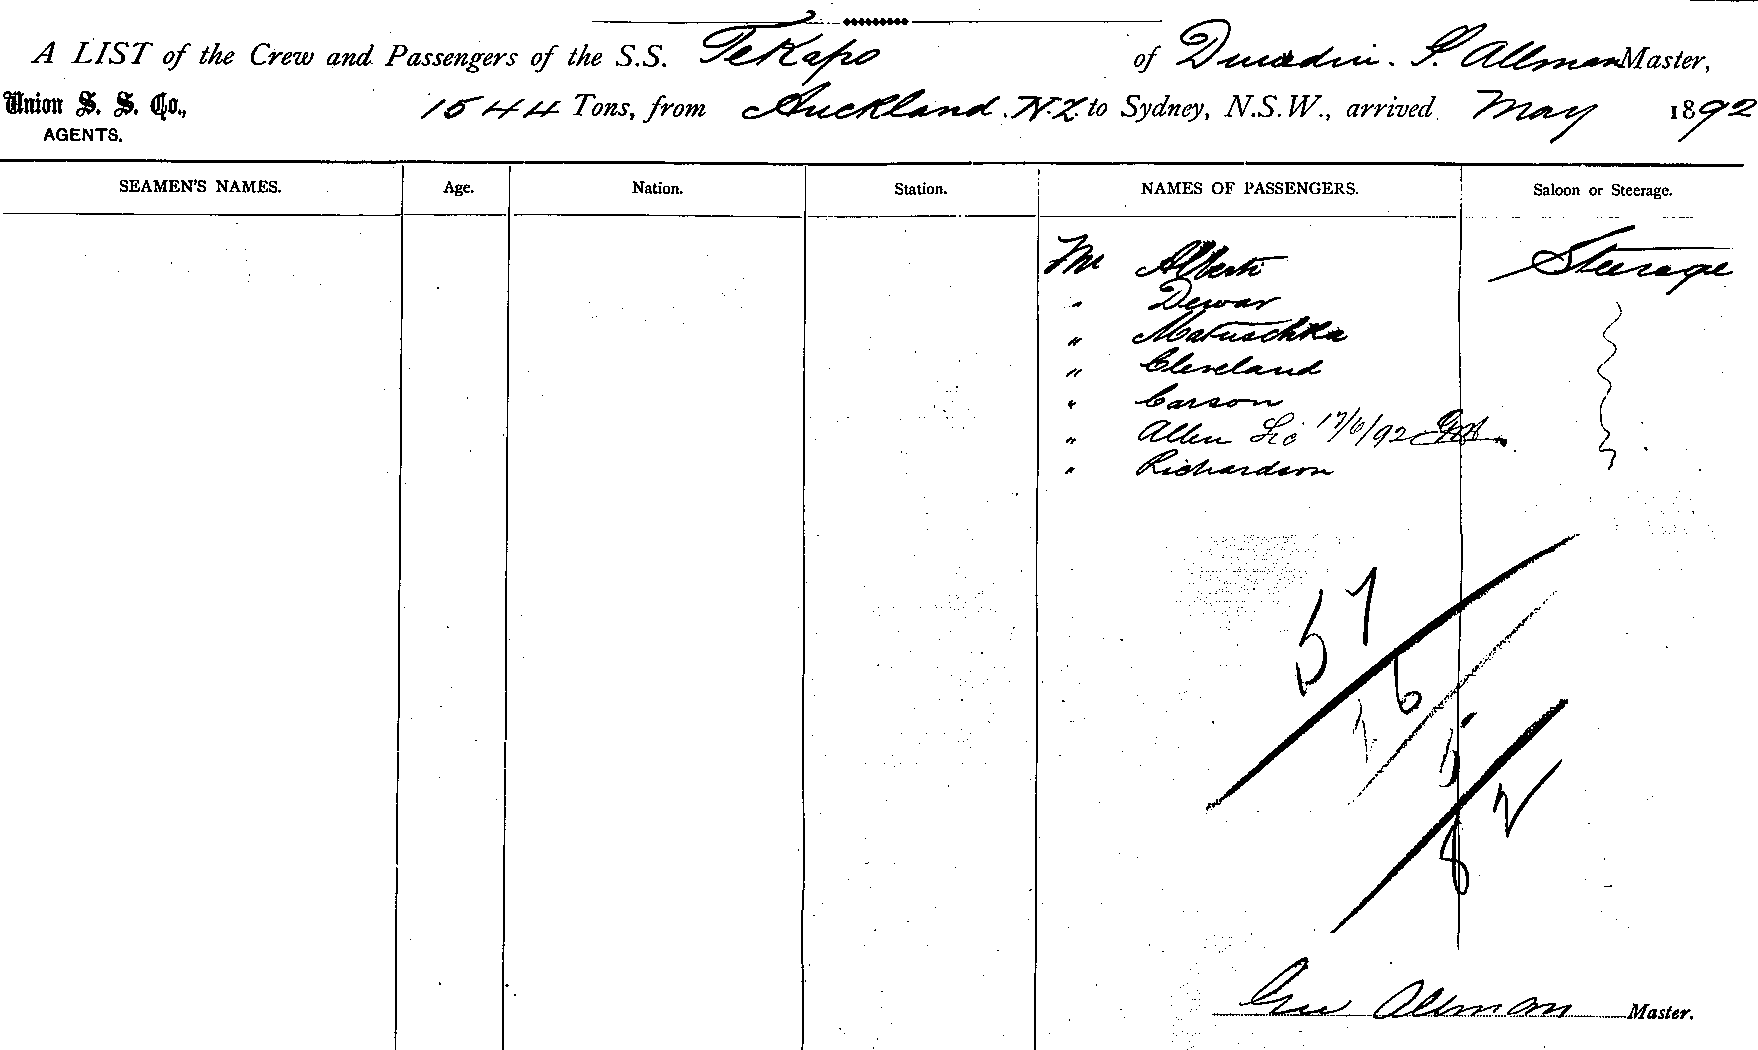 A LIST of the Crew and Passengers of the S.S. TeKapo of Dunedin. G. Allman Master,
Union S. S. Co., 1544 Tons, from Auckland. N.Z. to Sydney, N.S.W., arrived May 1892
AGENTS.
SEAMEN'S NAMES. Age. Nation. Station. NAMES OF PASSENGERS. Saloon or Steerage.
Mr Alberti Steerage
" Dewar
" Matuschka
" Cleveland
" Carson
" Allen Lic 17/6/92
" Richardson
57
26
5
8 2
Geo Allman Master.